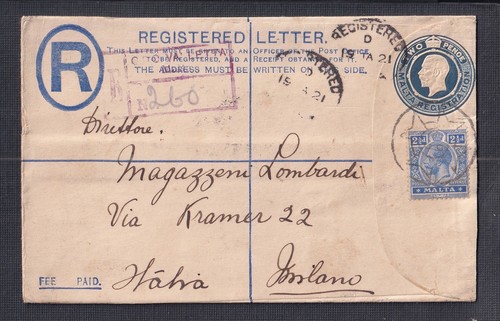 REGISTERED LETTER.
THIS LETTER MUST BE GIVEN TO AN OFFICER OF THE POST OFFICE
TO BE REGISTERED, AND A RECEIPT OBTAINED FOR IT.
THE ADDRESS MUST BE WRITTEN ON THIS SIDE.
R
VALLETTA
R
No 260
REGISTERED
D
15 MA 21
REGISTERED
D
15 21
TWO PENCE
MALTA REGISTRATION
2½d 2½d
MALTA
Direttore
Magazzeni Lombardi
Via Kramer 22
Italia Milano
FEE PAID.